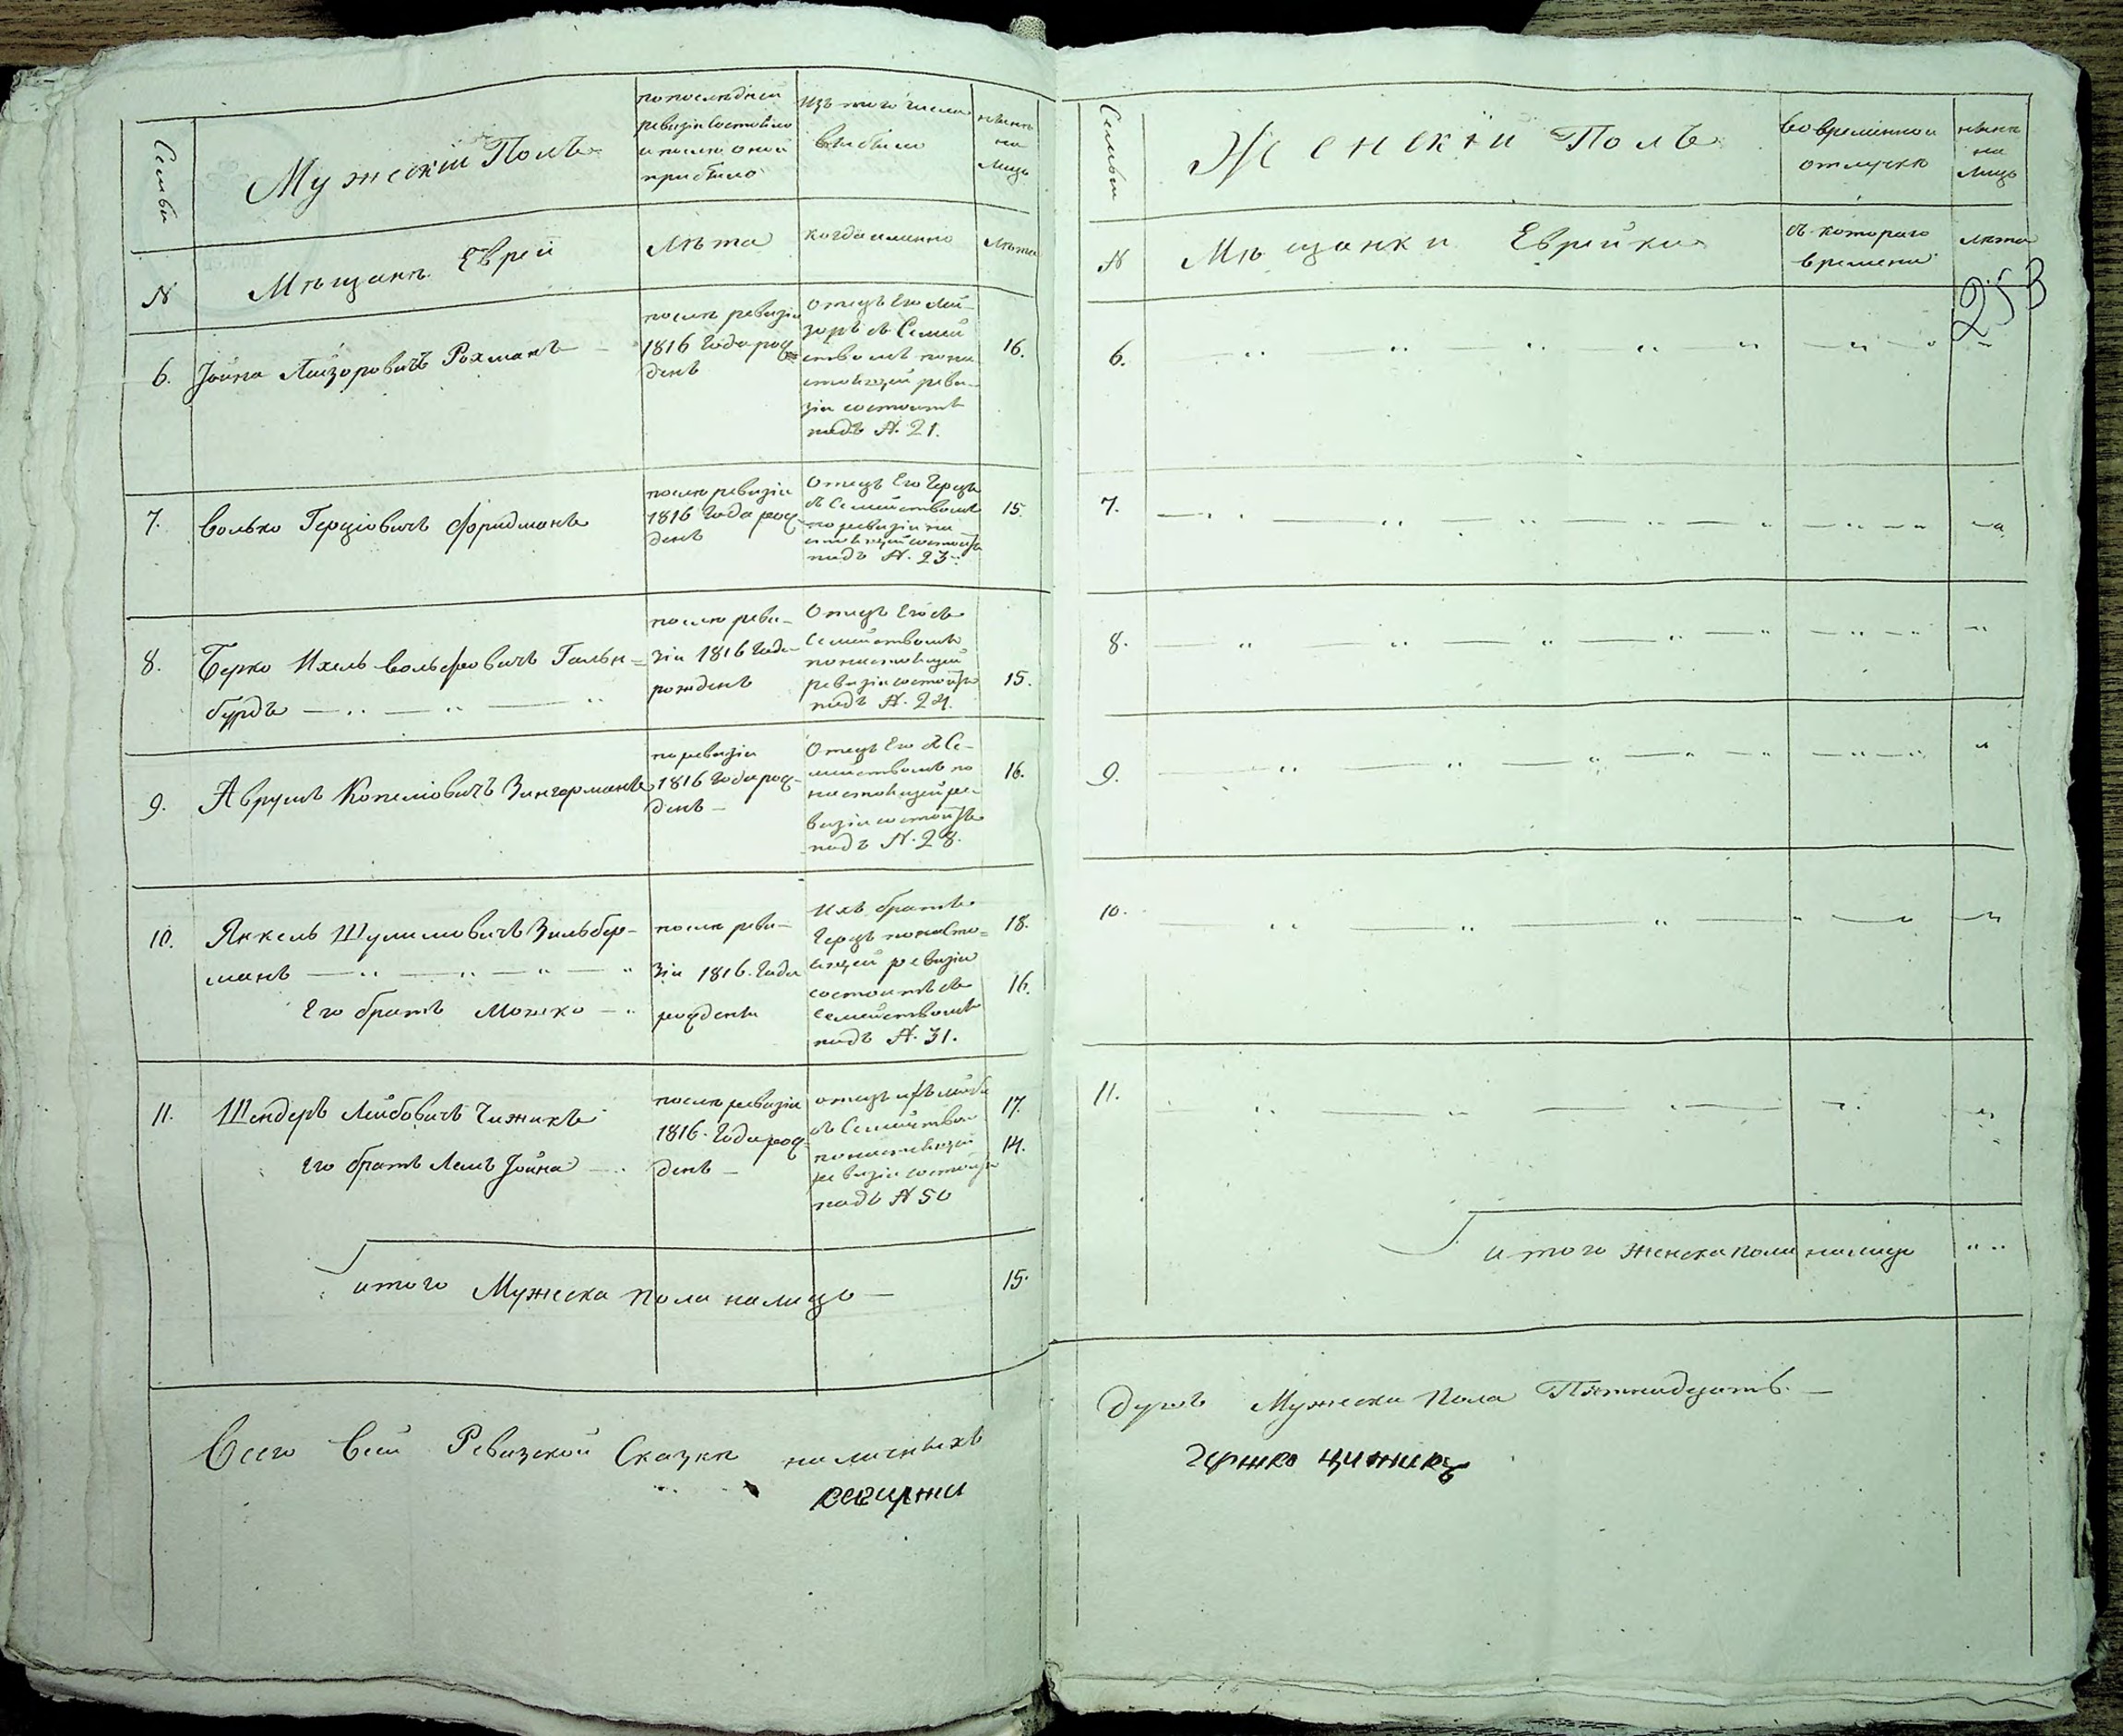 Семьи
Мужескій Полъ
по последней
ревизіи состояло
и после оной
прибыло
изъ того числа
выбыло
ныне
на
лицо
N
Мещане Евреи
Лета
когда именно
Лета
6.
Іойна Лейзоровичъ Рохманъ —
после ревизіи
1816 Года рож-
денъ
Отецъ Его Лей-
зоръ съ Семей
ствомъ по на
стоящей реви-
зіи состоитъ
подъ N. 21.
16.
7.
Волько Герціовичъ Фридманъ
после ревизіи
1816 Года рож-
денъ
Отецъ Его Герцъ
съ Семействомъ
по ревизіи на
стоящей состоитъ
подъ N. 23
15.
8.
Берко Ихель Вольфовичъ Гольн=
бурдъ
после реви-
зіи 1816 Года
рожденъ
Отецъ Его съ
Семействомъ
по настоящей
ревизіи состоитъ
подъ N. 24.
15.
9.
Аврумъ Копеліовичъ Зингерманъ
по ревизіи
1816 Года рож-
денъ —
Отецъ Его съ Се-
мействомъ по
настоящей ре-
визіи состоитъ
подъ N. 28.
16.
10.
Янкель Шулимовичъ Зильбер-
манъ
Его братъ Мошко
после реви-
зіи 1816. Года
рождены
Ихъ братъ
Герцъ по насто=
ящей ревизіи
состоитъ съ
Семействомъ
подъ N. 31.
18.
16.
11.
Шендеръ Лейбовичъ Чижикъ
Его братъ Лемъ Іойна
после ревизіи
1816. Года рож=
денъ —
отецъ ихъ Лейба
съ Семейством
по настоящей
ревизіи состоитъ
подъ N 50
17.
14.
итого Мужеска пола на лицо —
15.
Всего в сей Ревизской Сказке наличныхъ
Семьи
Женскій Полъ
во временной
отлучке
ныне
на
лицо
N
Мещанки Еврейки
съ котораго
времени
лета
253
6.
7.
8.
9.
10.
11.
итого Женска пола на лицо
душъ Мужеска Пола Пятнадцать. —
Чижикъ